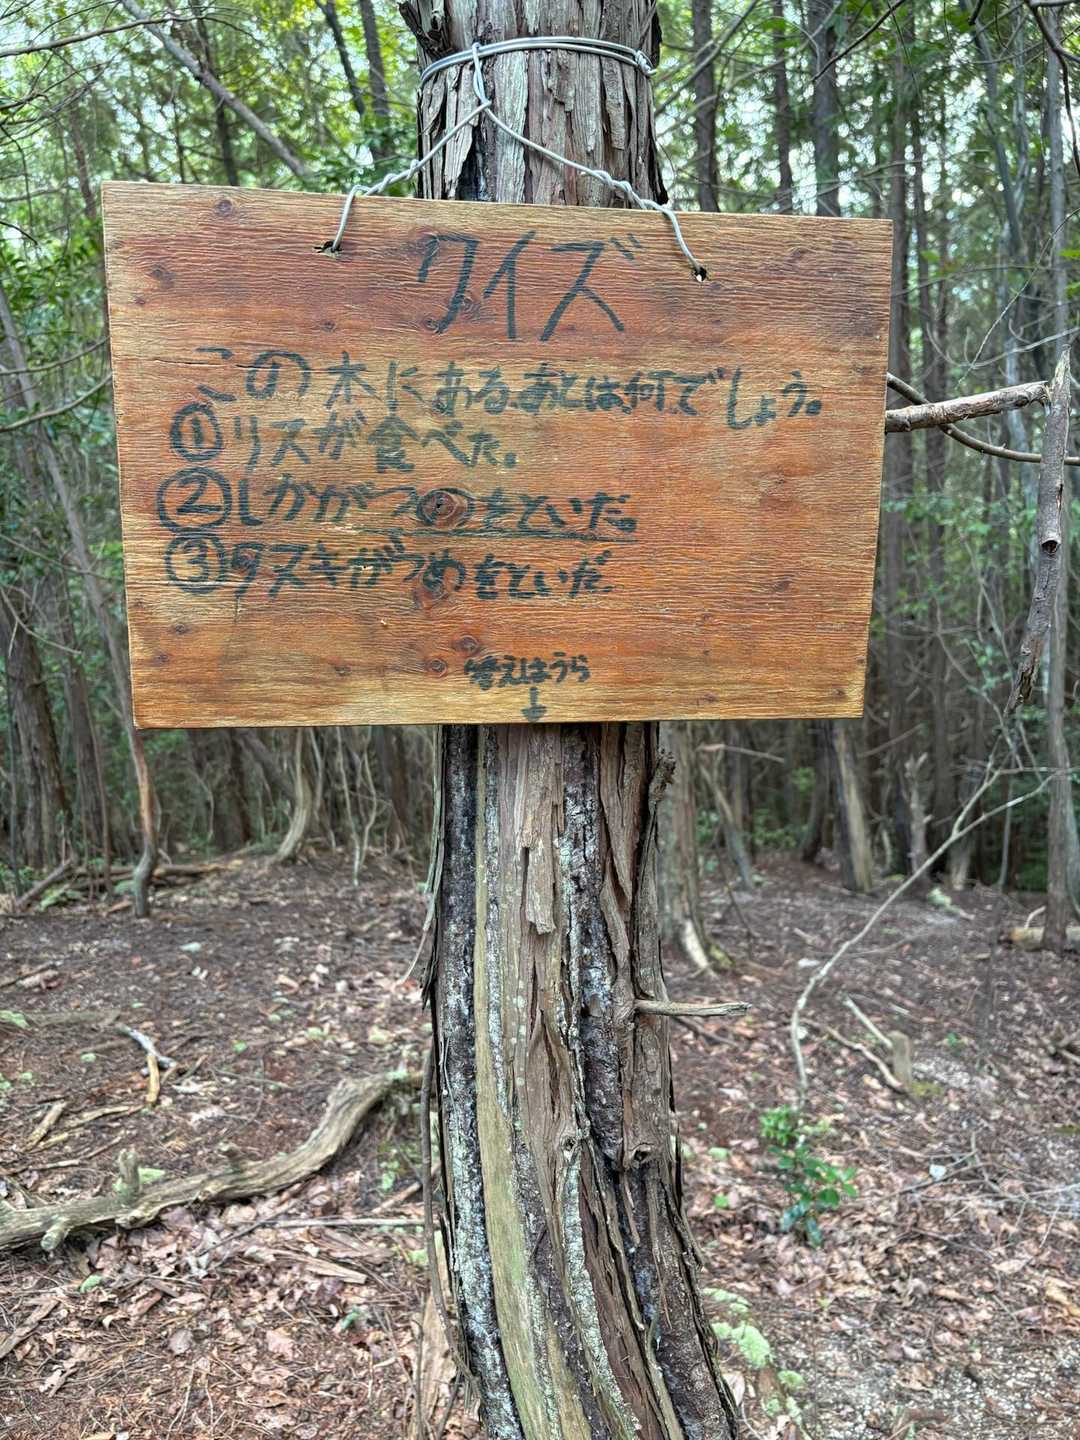 クイズ
この木にある、あとは、何でしょう。
①リスが食べた。
②しかがつのをといだ。
③タヌキがつめをといだ
答えはうら
↓